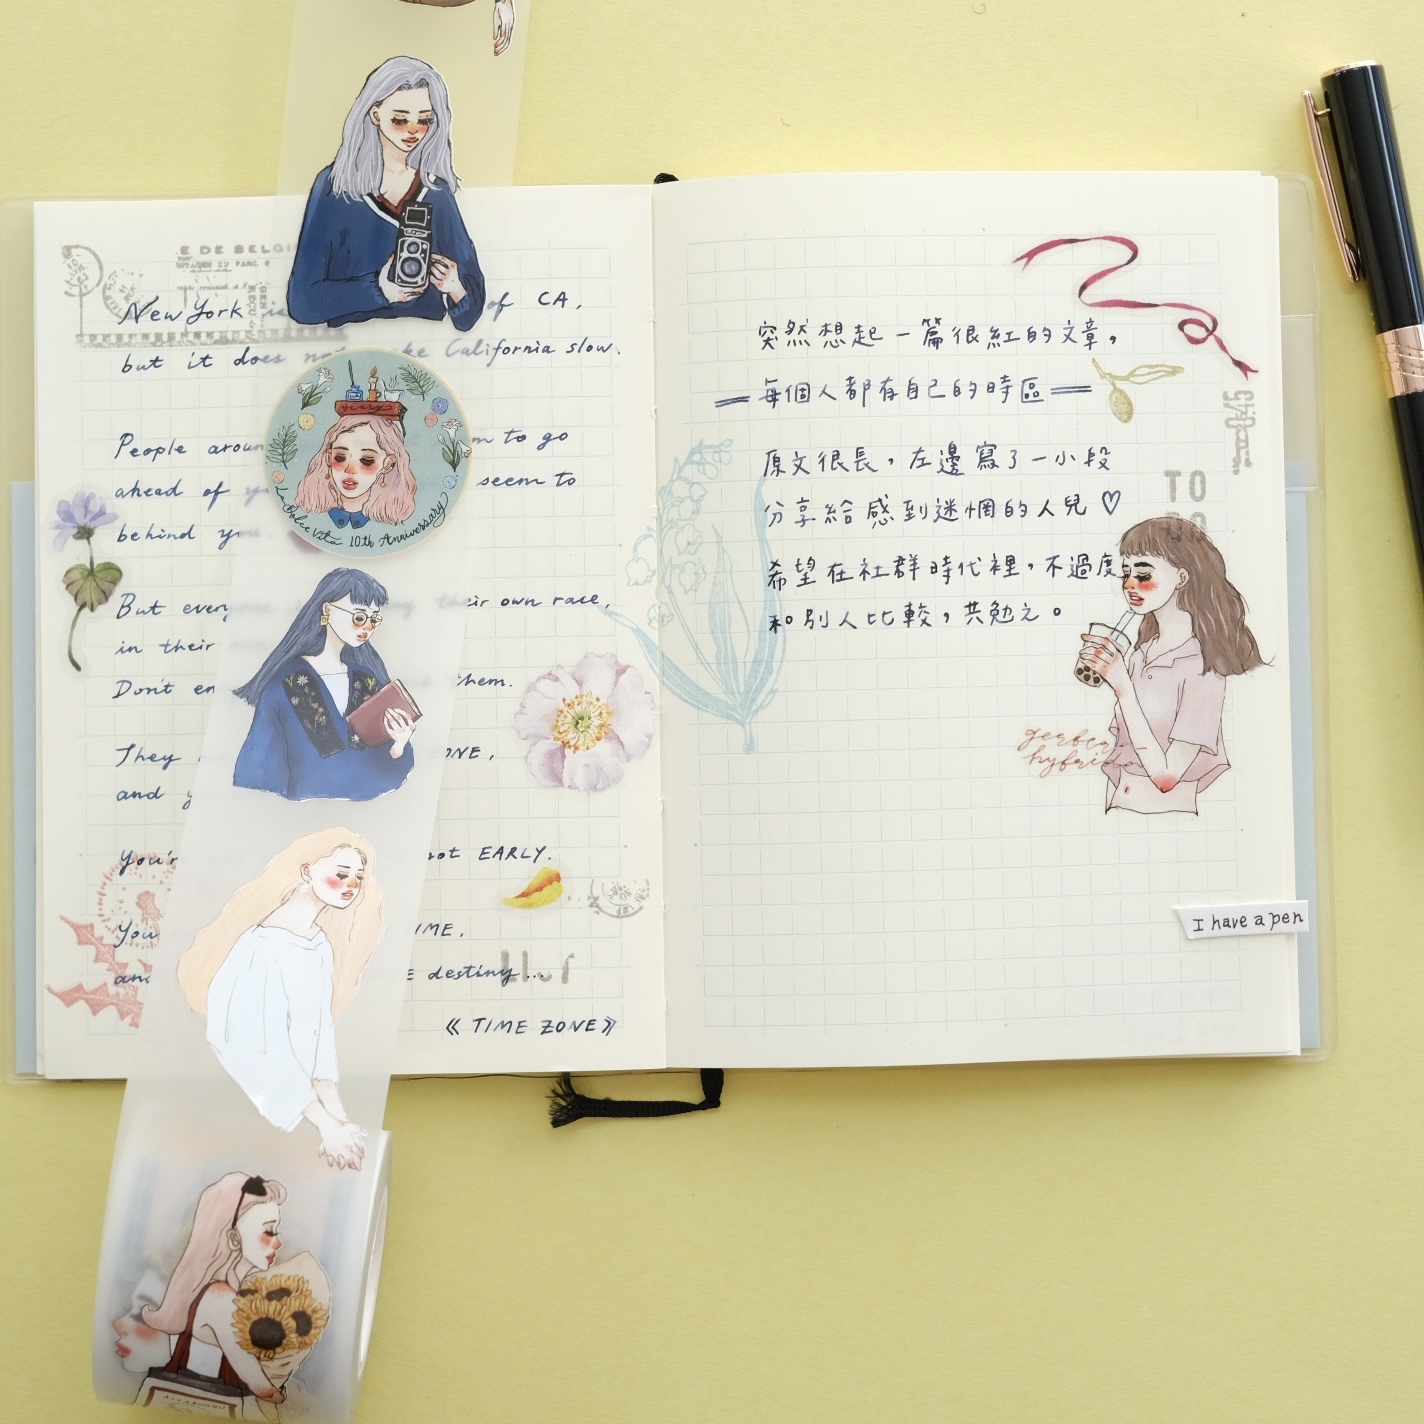 E DE BELGI
New York is of CA,
but it does California slow.
People aroun to go
ahead of seem to
behind you.
But every their own race,
in their
Don't en them.
They ONE,
and y
You'r not EARLY.
You IME.
and destiny...
《 TIME ZONE》
diary
La Dolce Vita 10th Anniversary
突然想起一篇很紅的文章，
每個人都有自己的時區
原文很長，左邊寫了一小段
分享給感到迷惘的人兒♡
希望在社群時代裡，不過度
和別人比較，共勉之。
TO
DO
gerbera
hybrida
I have a pen